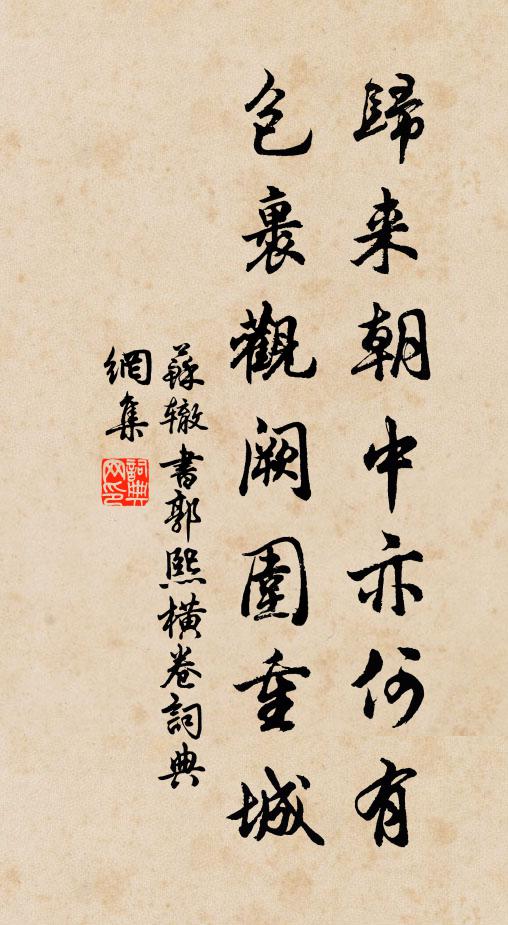 歸来朝中亦何有
包裹觀闕圍重城
蘇轍書郭熙橫卷詞典
網集
詞典
网印